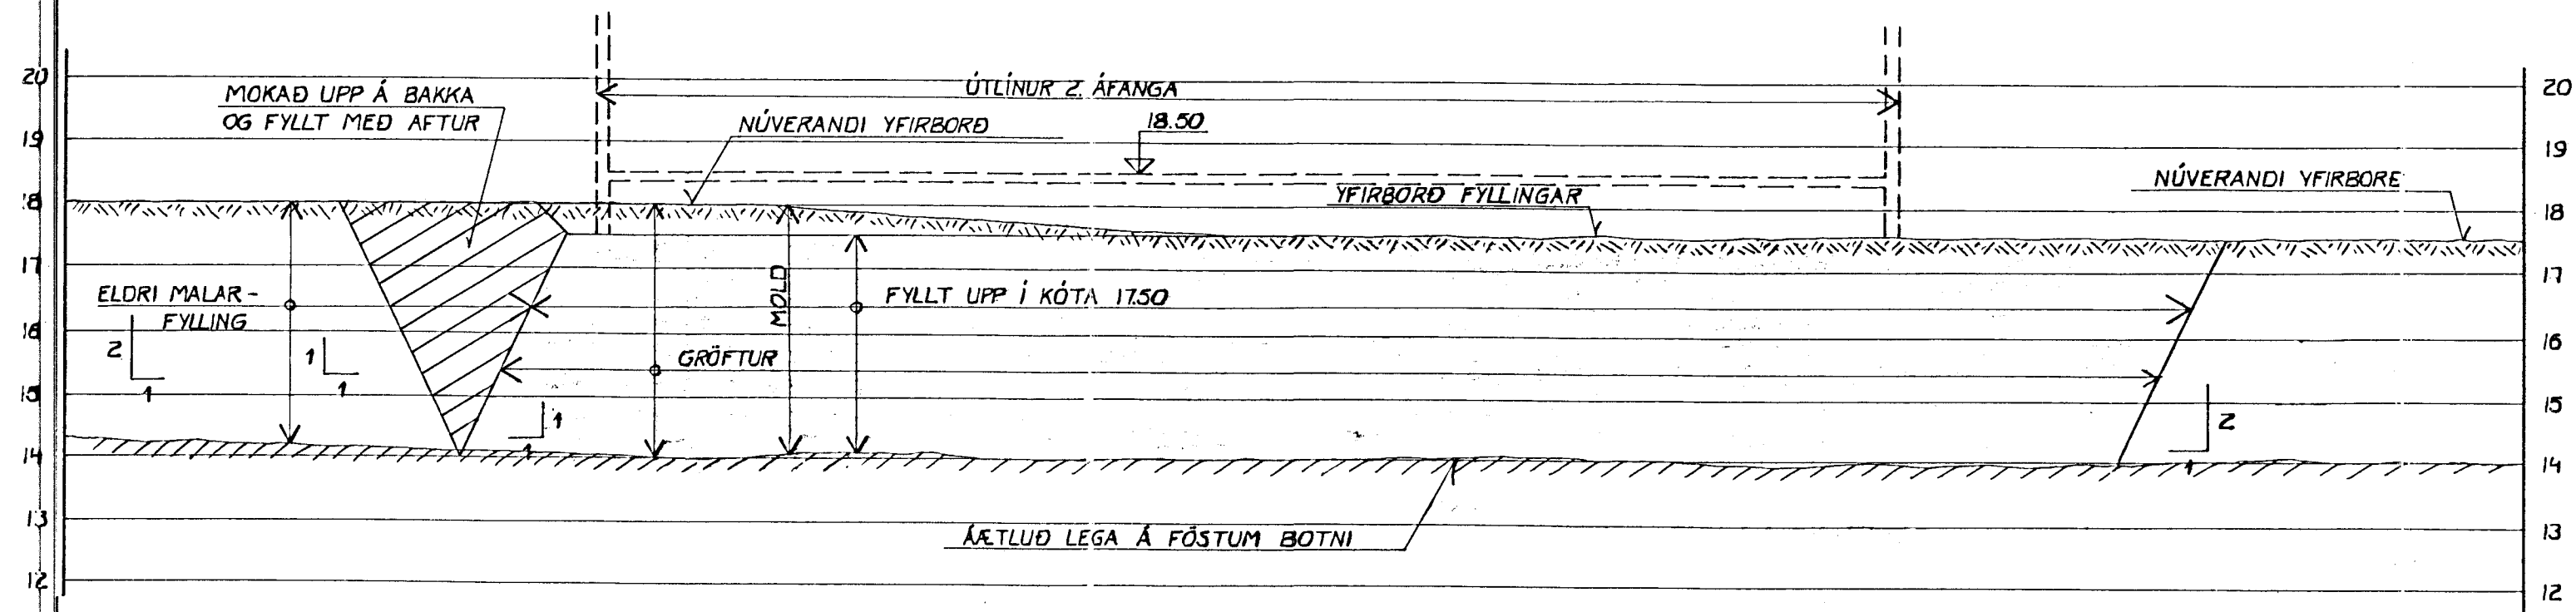 20
19
18
17
16
15
14
13
12
MOKAÐ UPP Á BAKKA
OG FYLLT MEÐ AFTUR
ÚTLÍNUR 2. ÁFANGA
NÚVERANDI YFIRBORÐ
18.50
YFIRBORÐ FYLLINGAR
NÚVERANDI YFIRBORÐ
ELDRI MALAR-
FYLLING
MOLD
FYLLT UPP Í KÓTA 17.50
GRÖFTUR
2
1
1
1
1
1
2
1
ÁÆTLUÐ LEGA Á FÖSTUM BOTNI
20
19
18
17
16
15
14
13
12